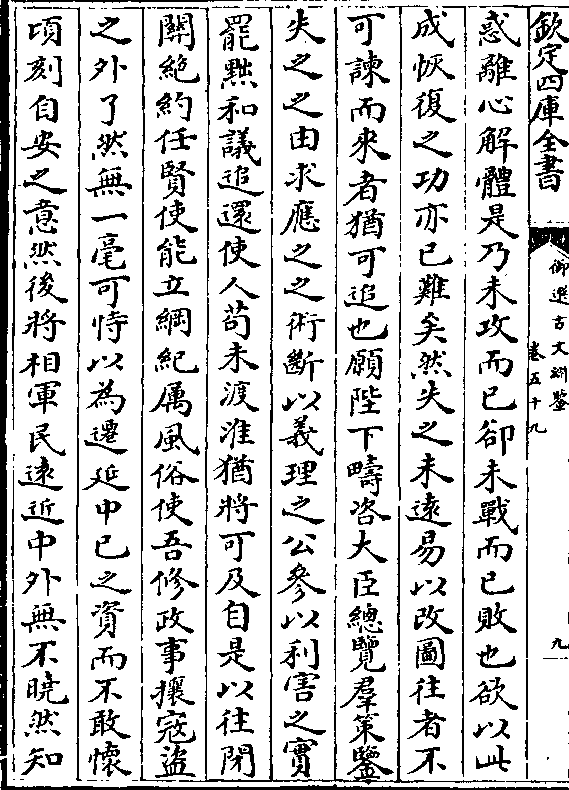 欽定四庫全書
御選古文淵鑒
卷五十九
九
惑離心解體是乃未攻而已卻未戰而已敗也欲以此
成恢復之功亦已難矣然失之未遠易以改圖往者不
可諫而來者猶可追也願陛下疇咨大臣總覽羣策鑒
失之之由求應之之術斷以義理之公參以利害之實
罷黜和議追還使人苟未渡淮猶將可及自是以往閉
關絶約任賢使能立綱紀厲風俗使吾修政事攘寇盜
之外了然無一毫可恃以為遷延中已之資而不敢懷
頃刻自安之意然後將相軍民遠近中外無不曉然知